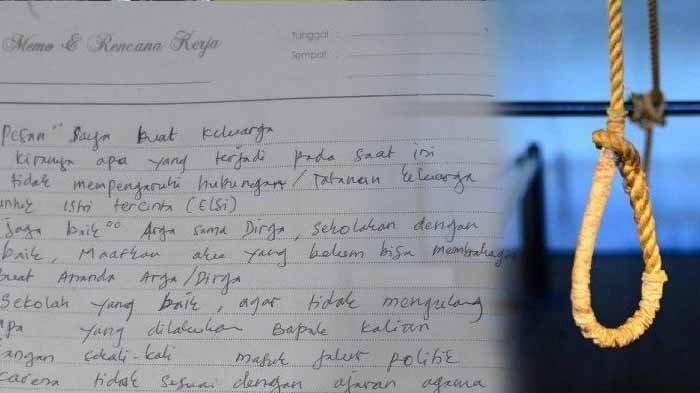 Memo & Rencana Kerja
Tanggal :
Sempat :
Pesan°° Saya buat keluarga
kiranya apa yang terjadi pada saat ini
tidak mempengaruhi hubungan / Tatanan keluarga
untuk Istri tercinta (Elsi)
jaga baik°° Arga sama Dirga, sekolahan dengan
baik, Maafkan aku yang belum bisa membahagia
buat Ananda Arga/Dirga
Sekolah yang baik, agar tidak mengulang
apa yang dilakukan Bapak kalian
jangan sekali-kali masuk jalur politik
carena tidak sesuai dengan ajaran agama